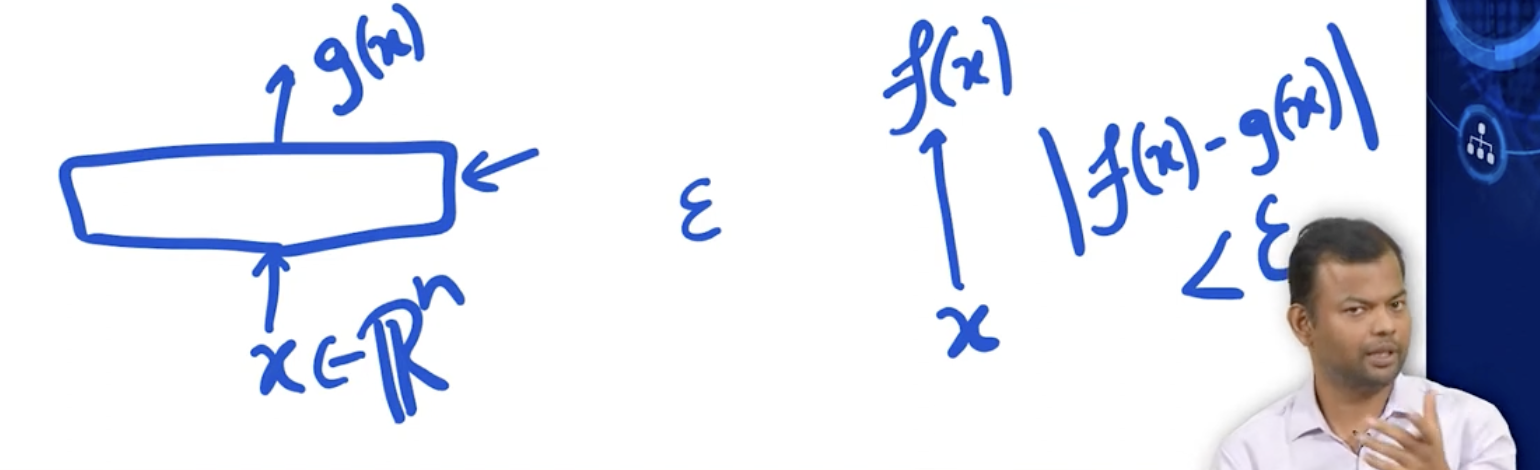 g(x)
x ∈ ℝⁿ
ε
f(x)
x
|f(x) - g(x)|
< ε